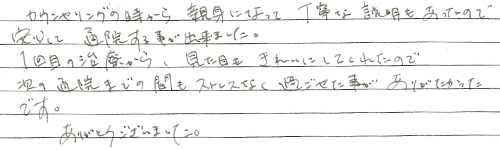 カウンセリングの時から 親身になって 丁寧な 説明も あったので
安心して 通院する事が出来ました。
1回目の治療から、見た目も きれいにしてくれたので
次の通院までの間も ストレスなく 過ごせた事が ありがたかった
です。
ありがとうございました。